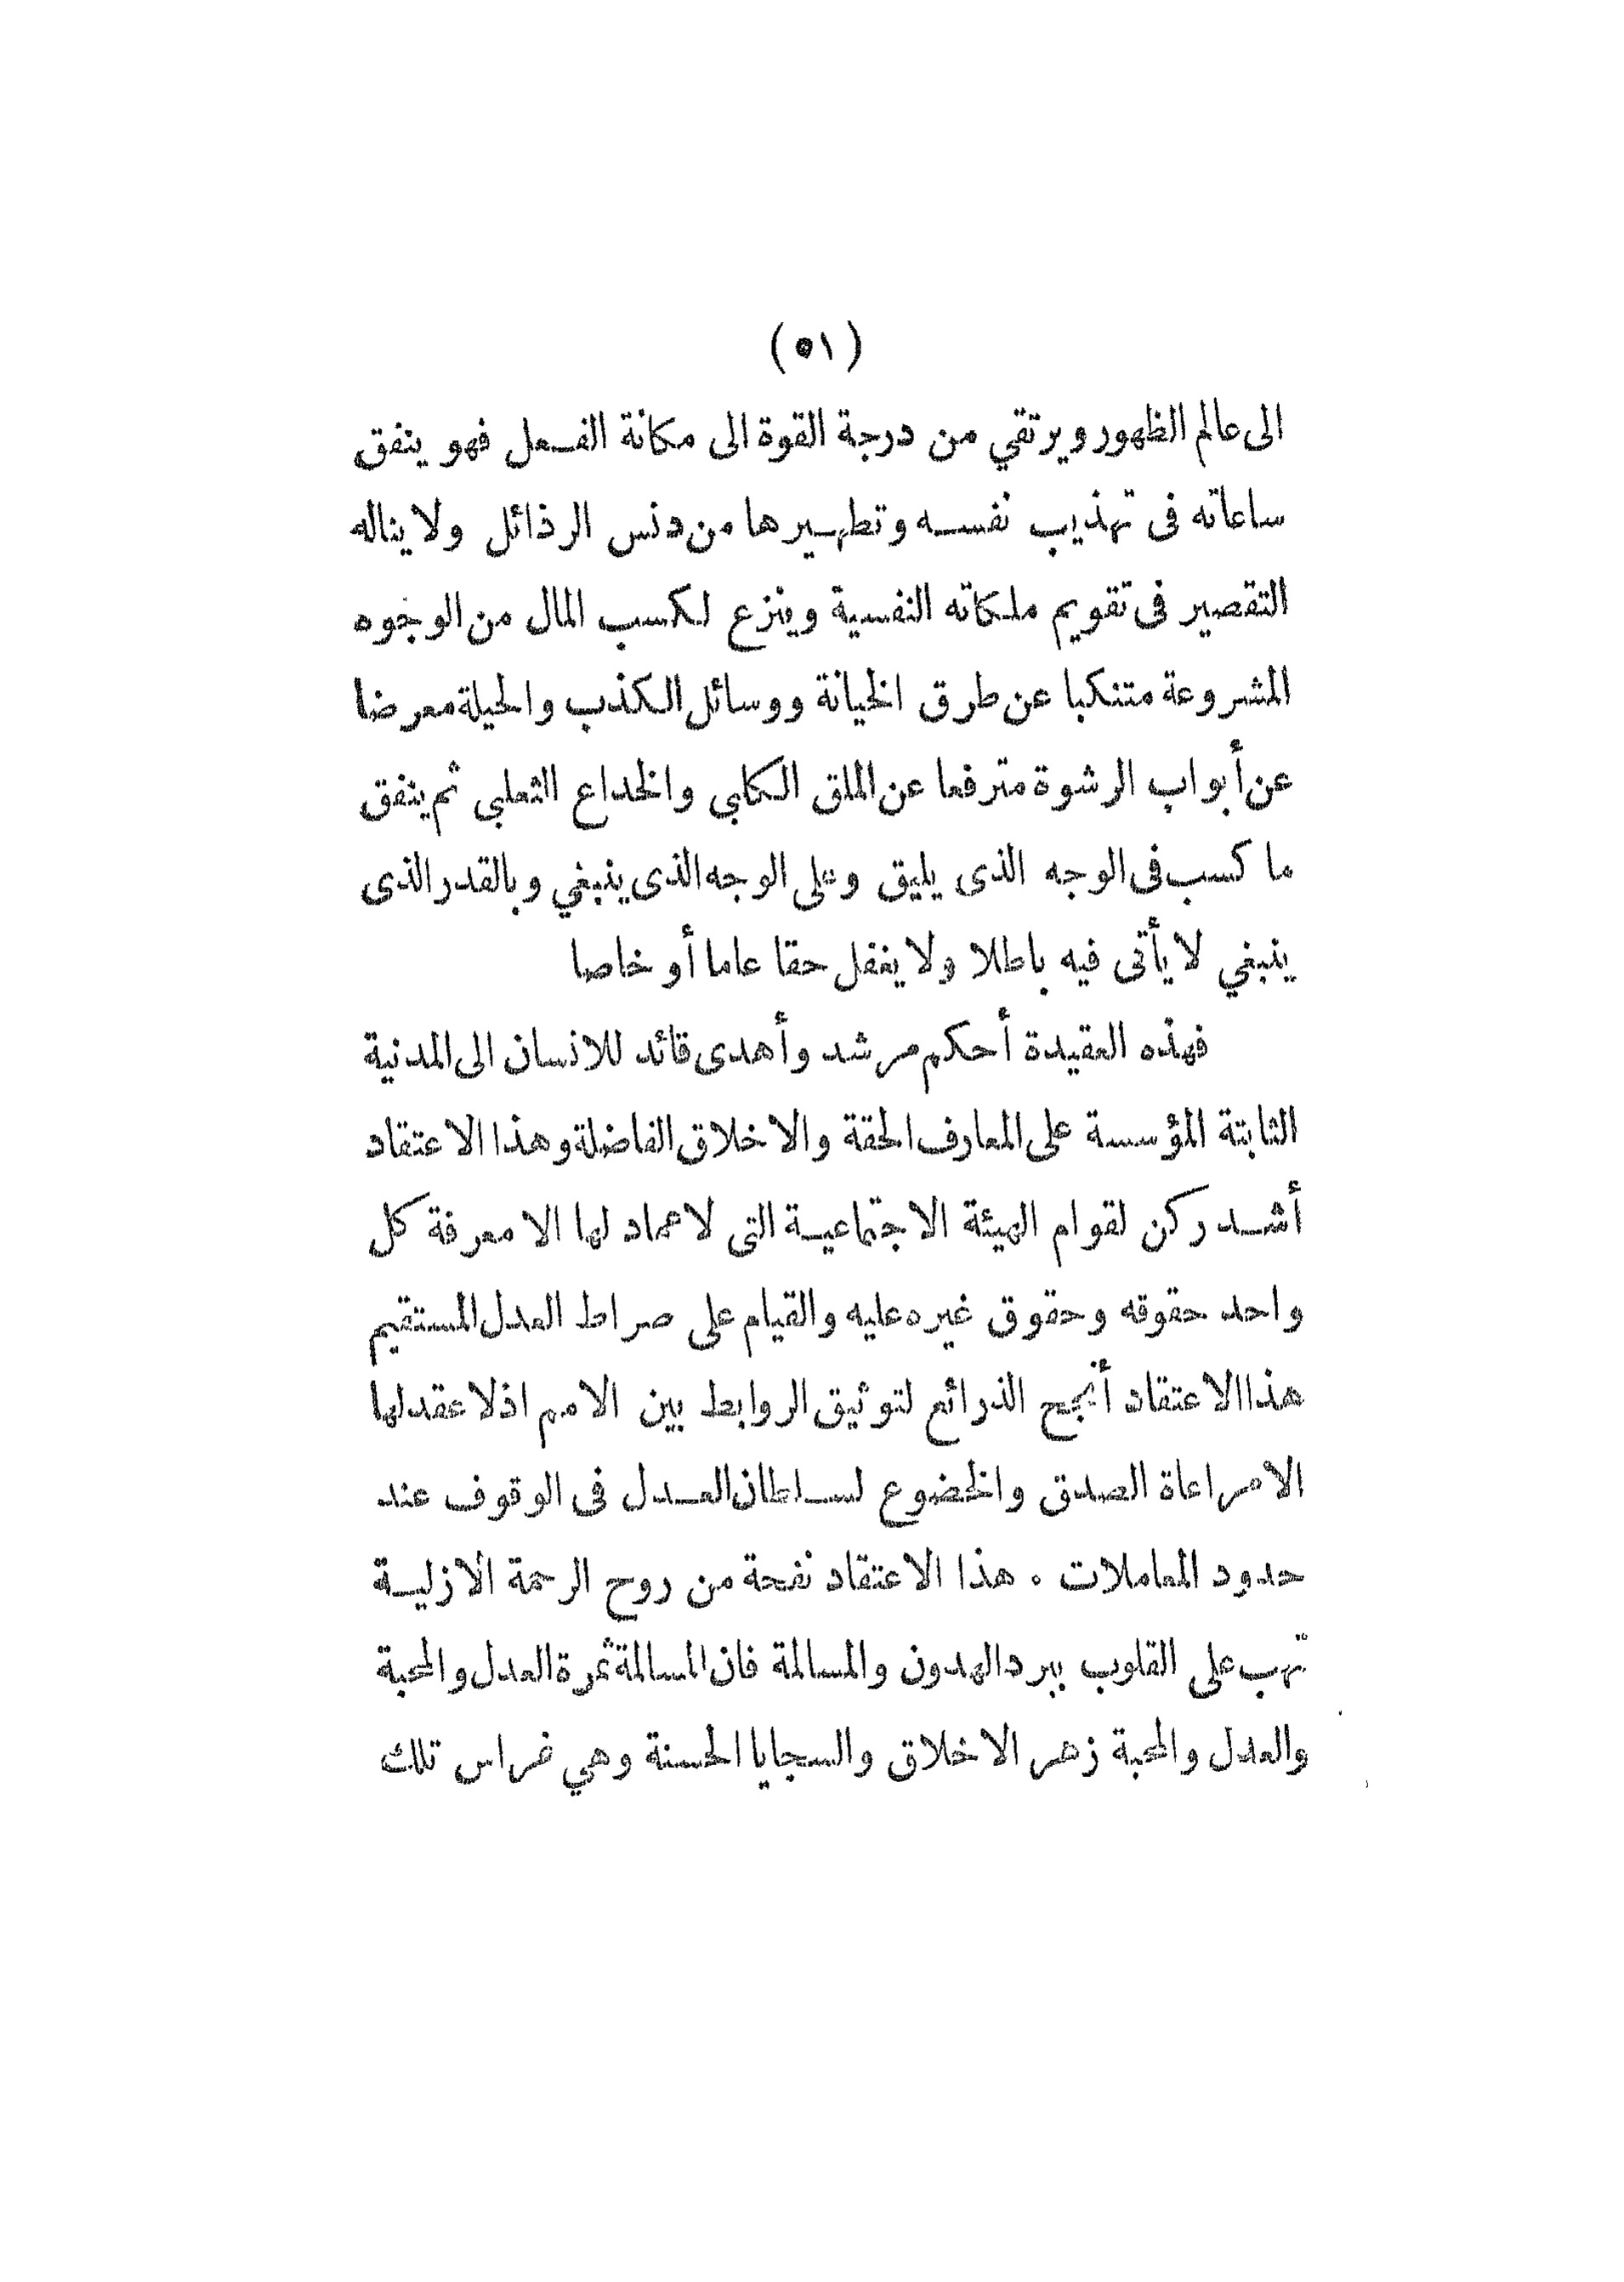 (٥١)
الى عالم الظهور ويرتقي من درجة القوة الى مكانة الفعل فهو ينفق
ساعاته فى تهذيب نفسه وتطهيرها من دنس الرذائل ولا يناله
التقصير فى تقويم ملكاته النفسية وينزع لكسب المال من الوجوه
المشروعة متنكبا عن طرق الخيانة ووسائل الكذب والحيلة معرضا
عن أبواب الرشوة مترفعا عن الملق الكلبي والخداع الثعلبي ثم ينفق
ما كسب فى الوجه الذى يليق وعلى الوجه الذى ينبغي وبالقدر الذى
ينبغي لا يأتى فيه باطلا ولا يغفل حقا عاما أو خاصا
فهذه العقيدة أحكم مرشد وأهدى قائد للانسان الى المدنية
الثابتة المؤسسة على المعارف الحقة والاخلاق الفاضلة وهذا الاعتقاد
أشد ركن لقوام الهيئة الاجتماعية التى لا عماد لها الا معرفة كل
واحد حقوقه وحقوق غيره عليه والقيام على صراط العدل المستقيم
هذا الاعتقاد أنجح الذرائع لتوثيق الروابط بين الامم اذ لا عقد لها
الا مراعاة الصدق والخضوع لسلطان العدل فى الوقوف عند
حدود المعاملات . هذا الاعتقاد نفحة من روح الرحمة الازلية
تهب على القلوب ببرد الهدون والمسالمة فان المسالمة ثمرة العدل والمحبة
والعدل والمحبة زهر الاخلاق والسجايا الحسنة وهي غراس تلك